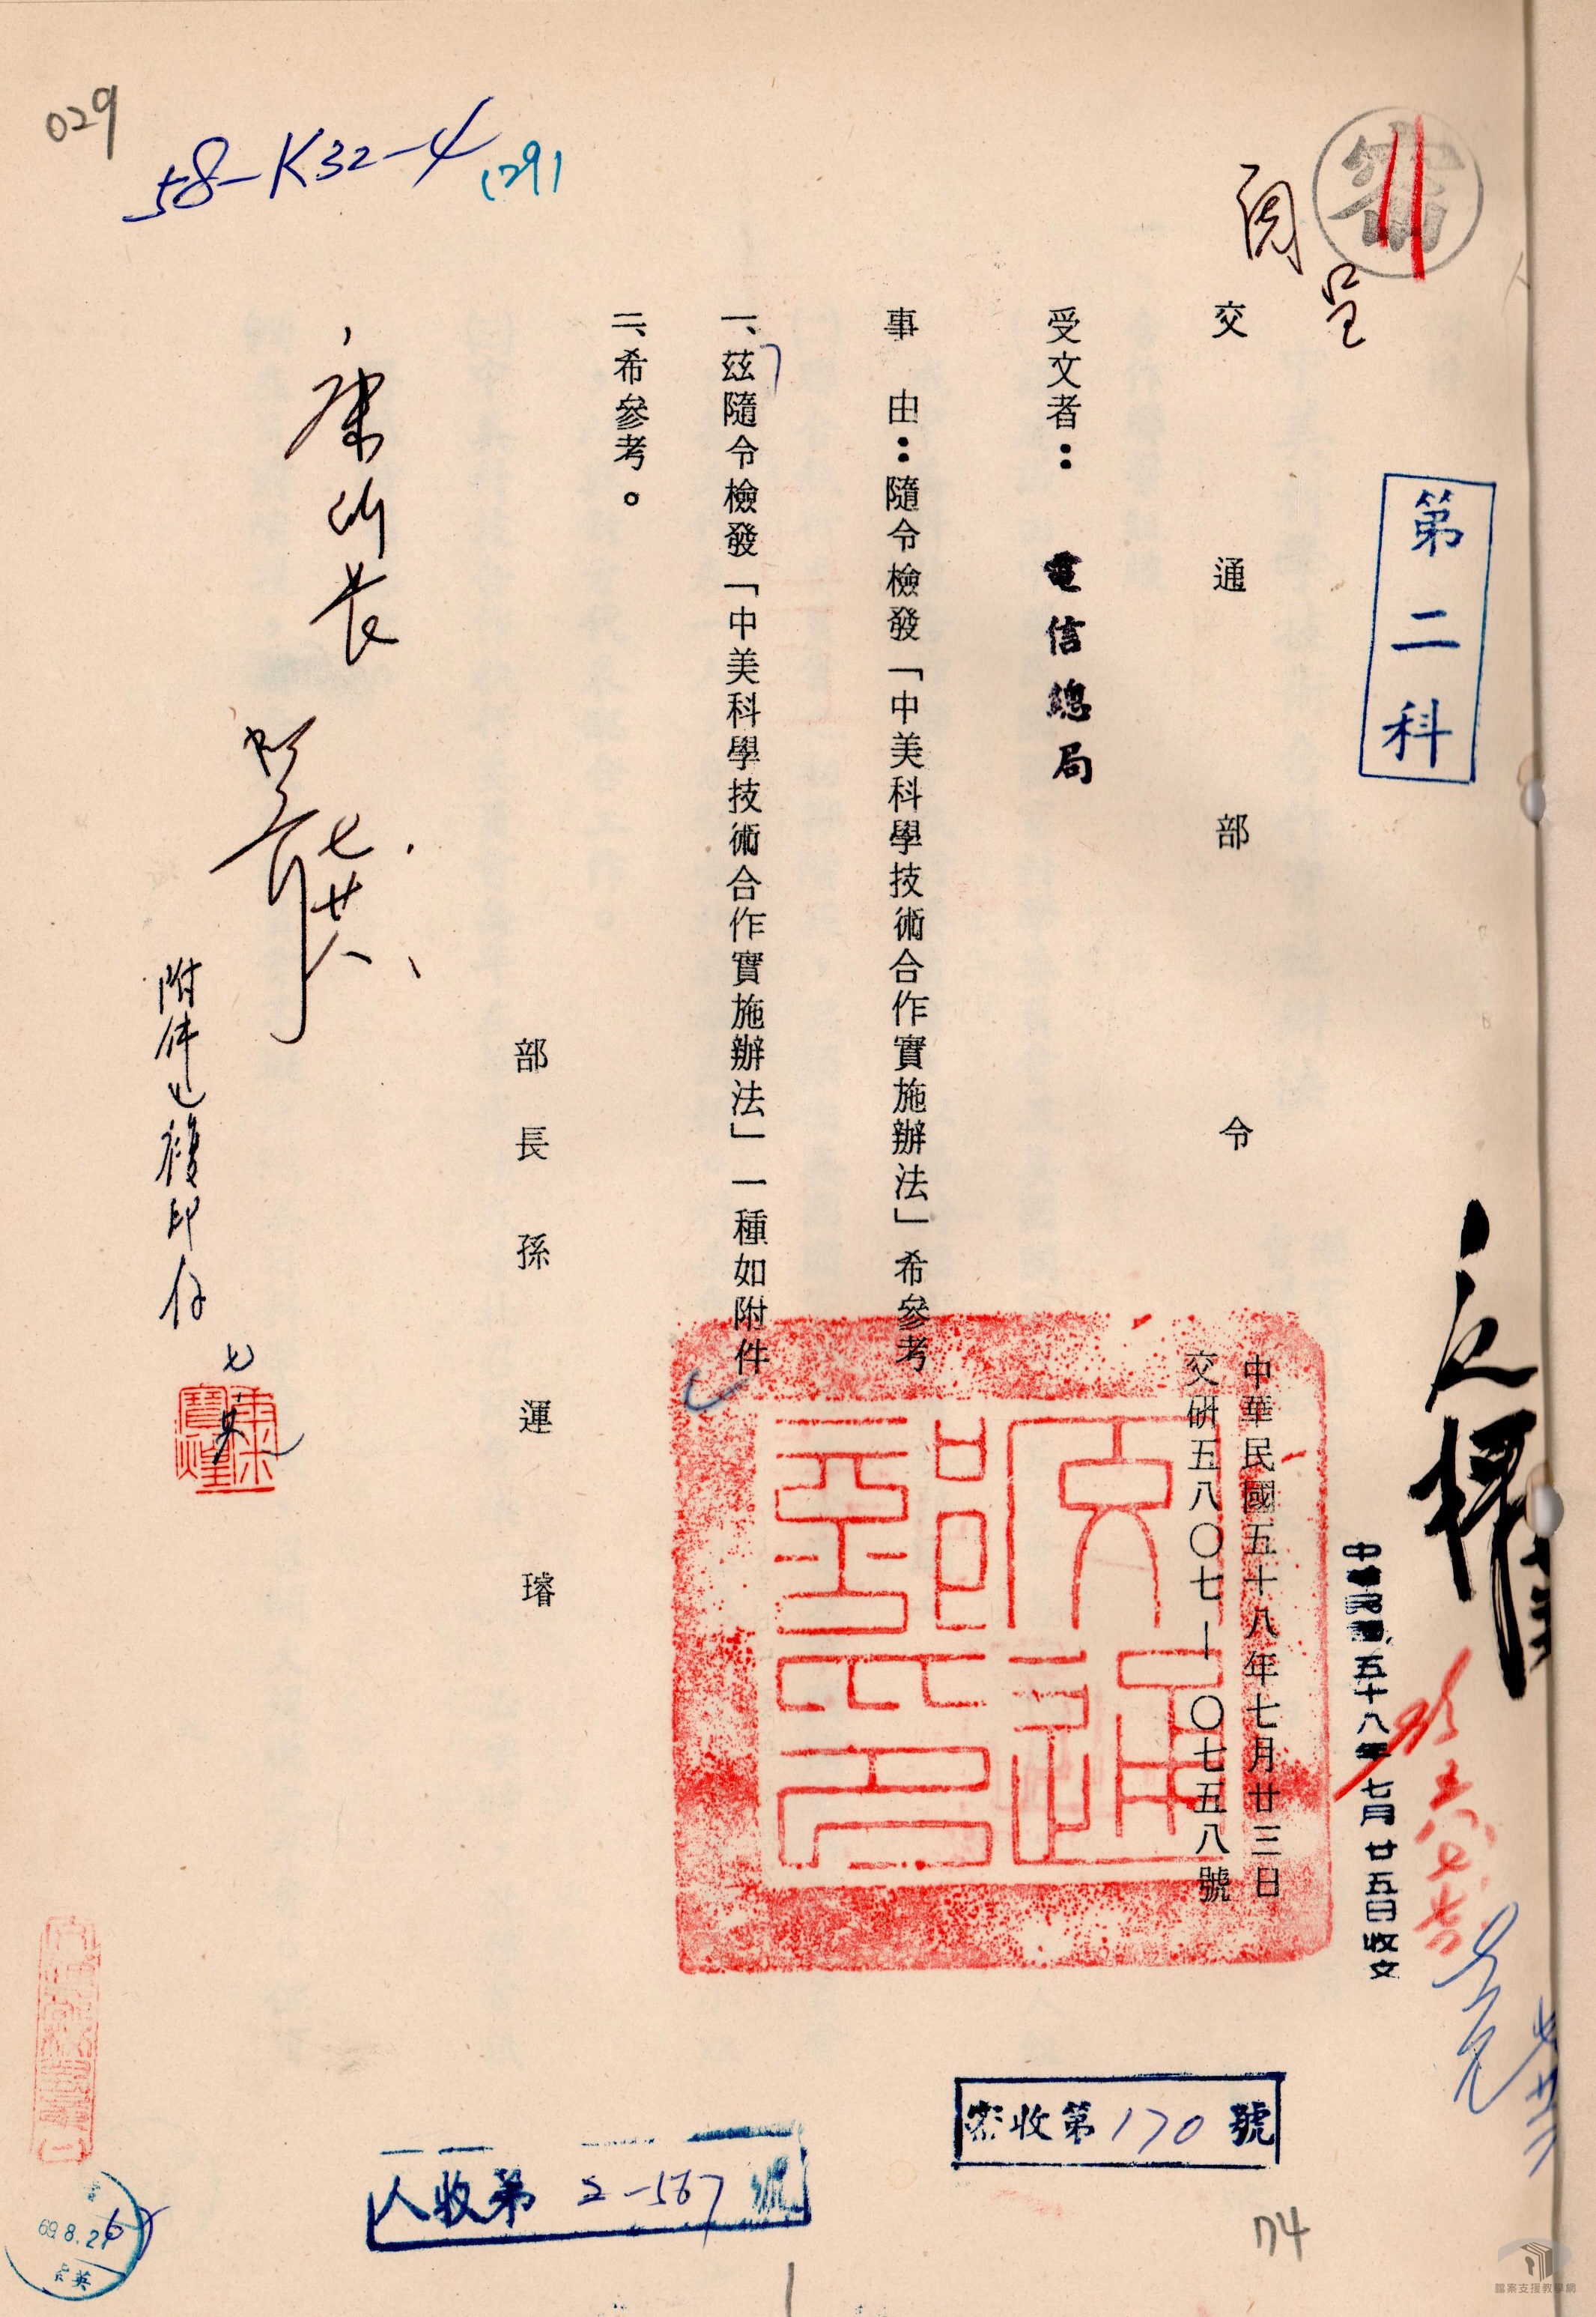 029
58-K32-4
(29)
密
呈
第二科
交通部令
中華民國五十八年七月廿三日
交研五八〇七—〇七五八號
中華民國五十八年七月廿五日收文
受文者：電信總局
事由：隨令檢發「中美科學技術合作實施辦法」希參考
一、茲隨令檢發「中美科學技術合作實施辦法」一種如附件
二、希參考。
部長孫運璿
七廿八
附件已複印存
密收第170號
人收第2-567號
174
69.8.26
檔案支援教學網